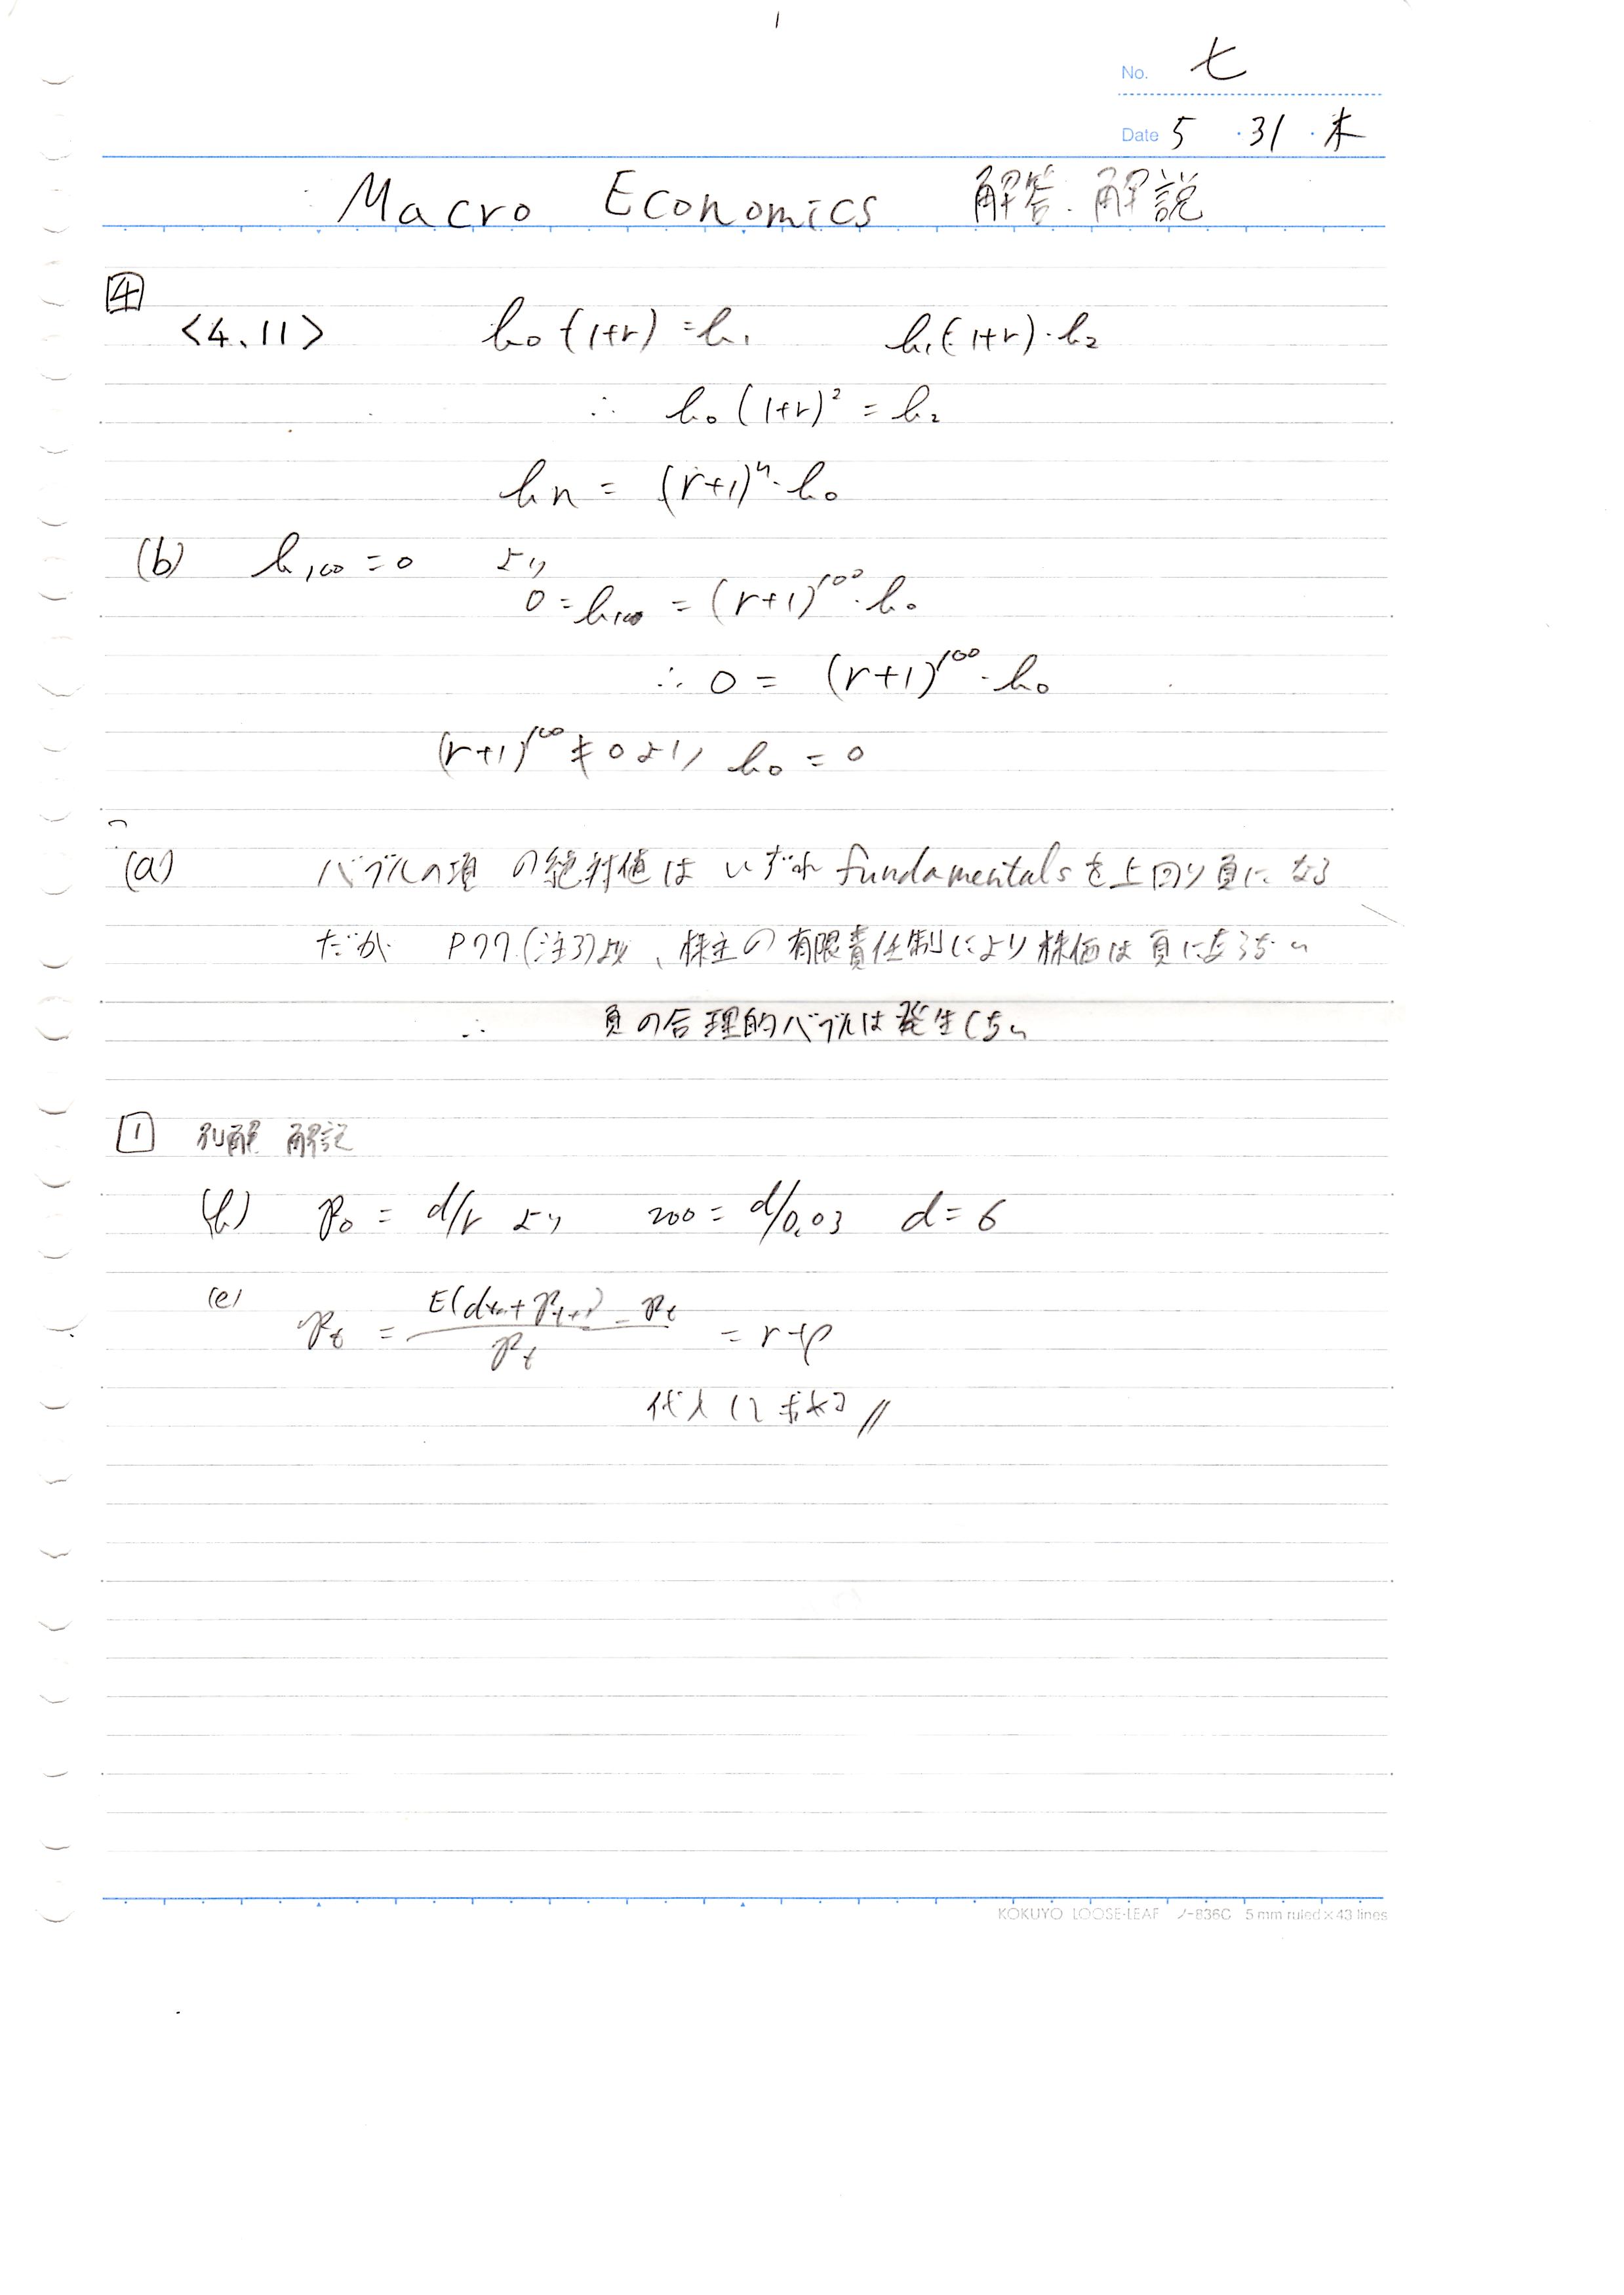 No. 七
Date 5 ・31 ・木
Macro Economics 解答・解説
4
<4.11> b₀(1+r) = b₁ b₁(1+r)・b₂
∴ b₀(1+r)² = b₂
bn = (r+1)ⁿ・b₀
(b) b₁₀₀ = 0 より
0 = b₁₀₀ = (r+1)¹⁰⁰・b₀
∴ 0 = (r+1)¹⁰⁰・b₀
(r+1)¹⁰⁰ ≠ 0 より b₀ = 0
(a) バブルの項 の絶対値は いずれ fundamentalsを上回り負になる
だが P77.(注3)より、株主の有限責任制により株価は負にならない
∴ 負の合理的バブルは発生しない
1 別解 解説
(b) p₀ = d/r より 200 = d/0.03 d = 6
(e) pₜ = E(dₜ₊₁ + pₜ₊₁) - pₜ / pₜ = r+ρ
代入して求める //
KOKUYO LOOSE-LEAF ノ-836C 5 mm ruled×43 lines